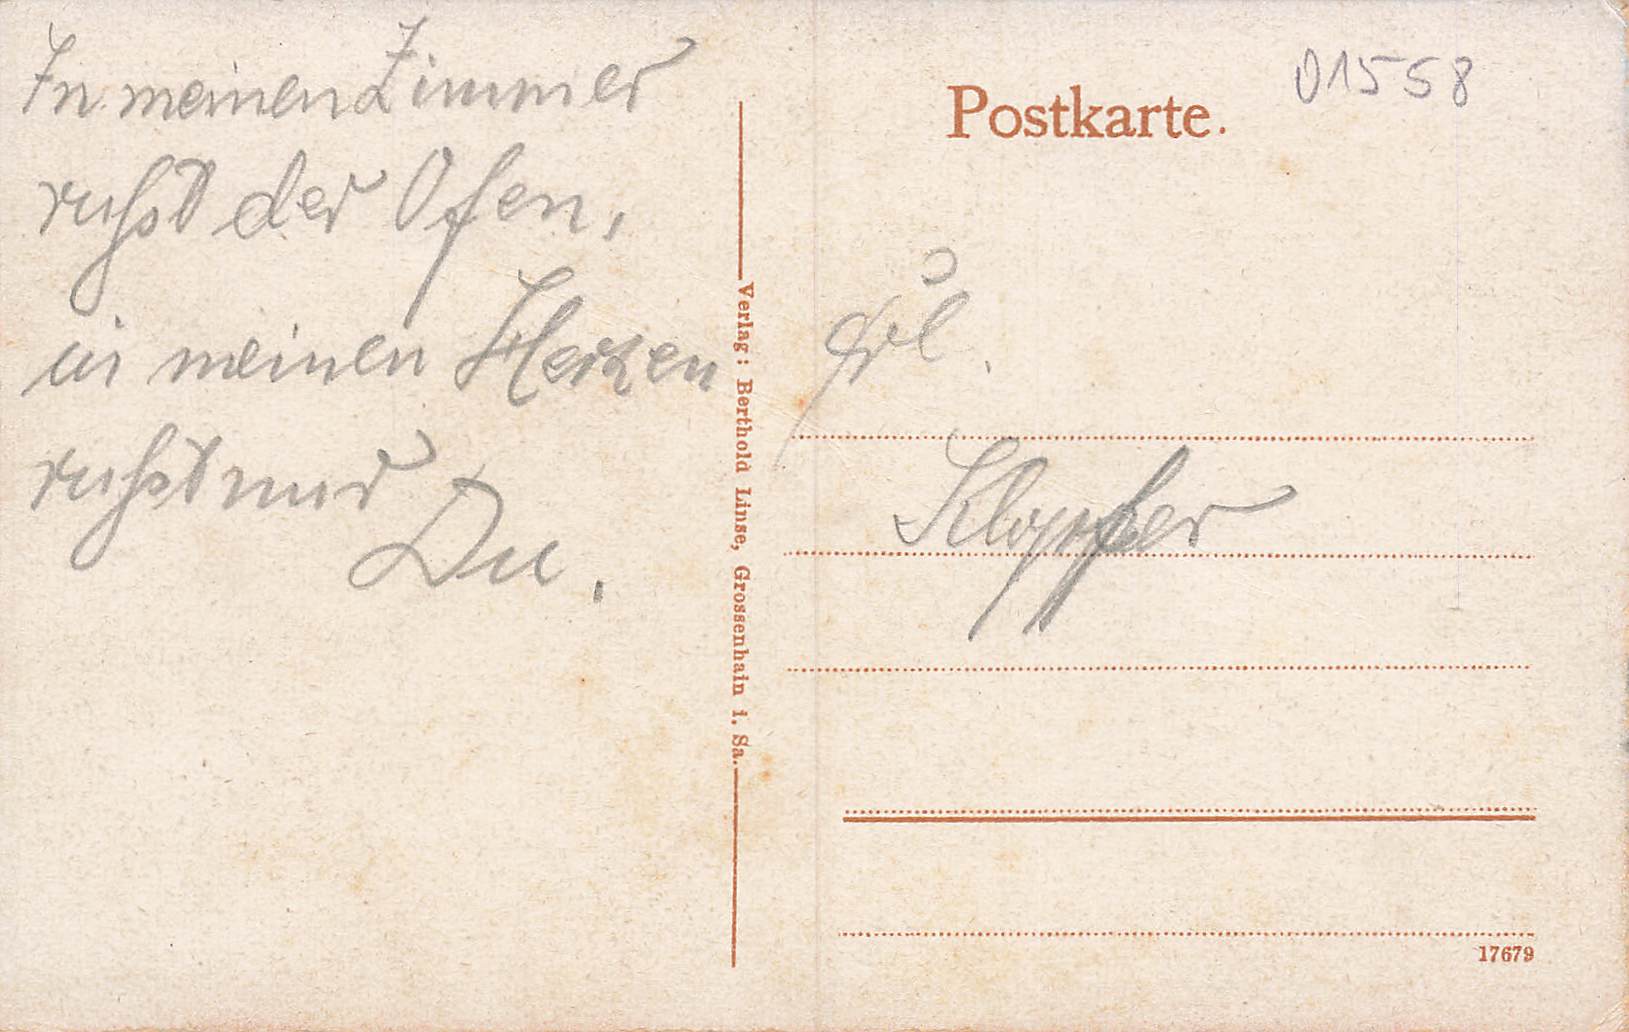 In meinen Zimmer
ruhst der Ofen,
in meinen Herzen
ruhst nur
Du.
Verlag: Berthold Linse, Grossenhain i. Sa.
Postkarte.
01558
Frl.
Klopfer
17679